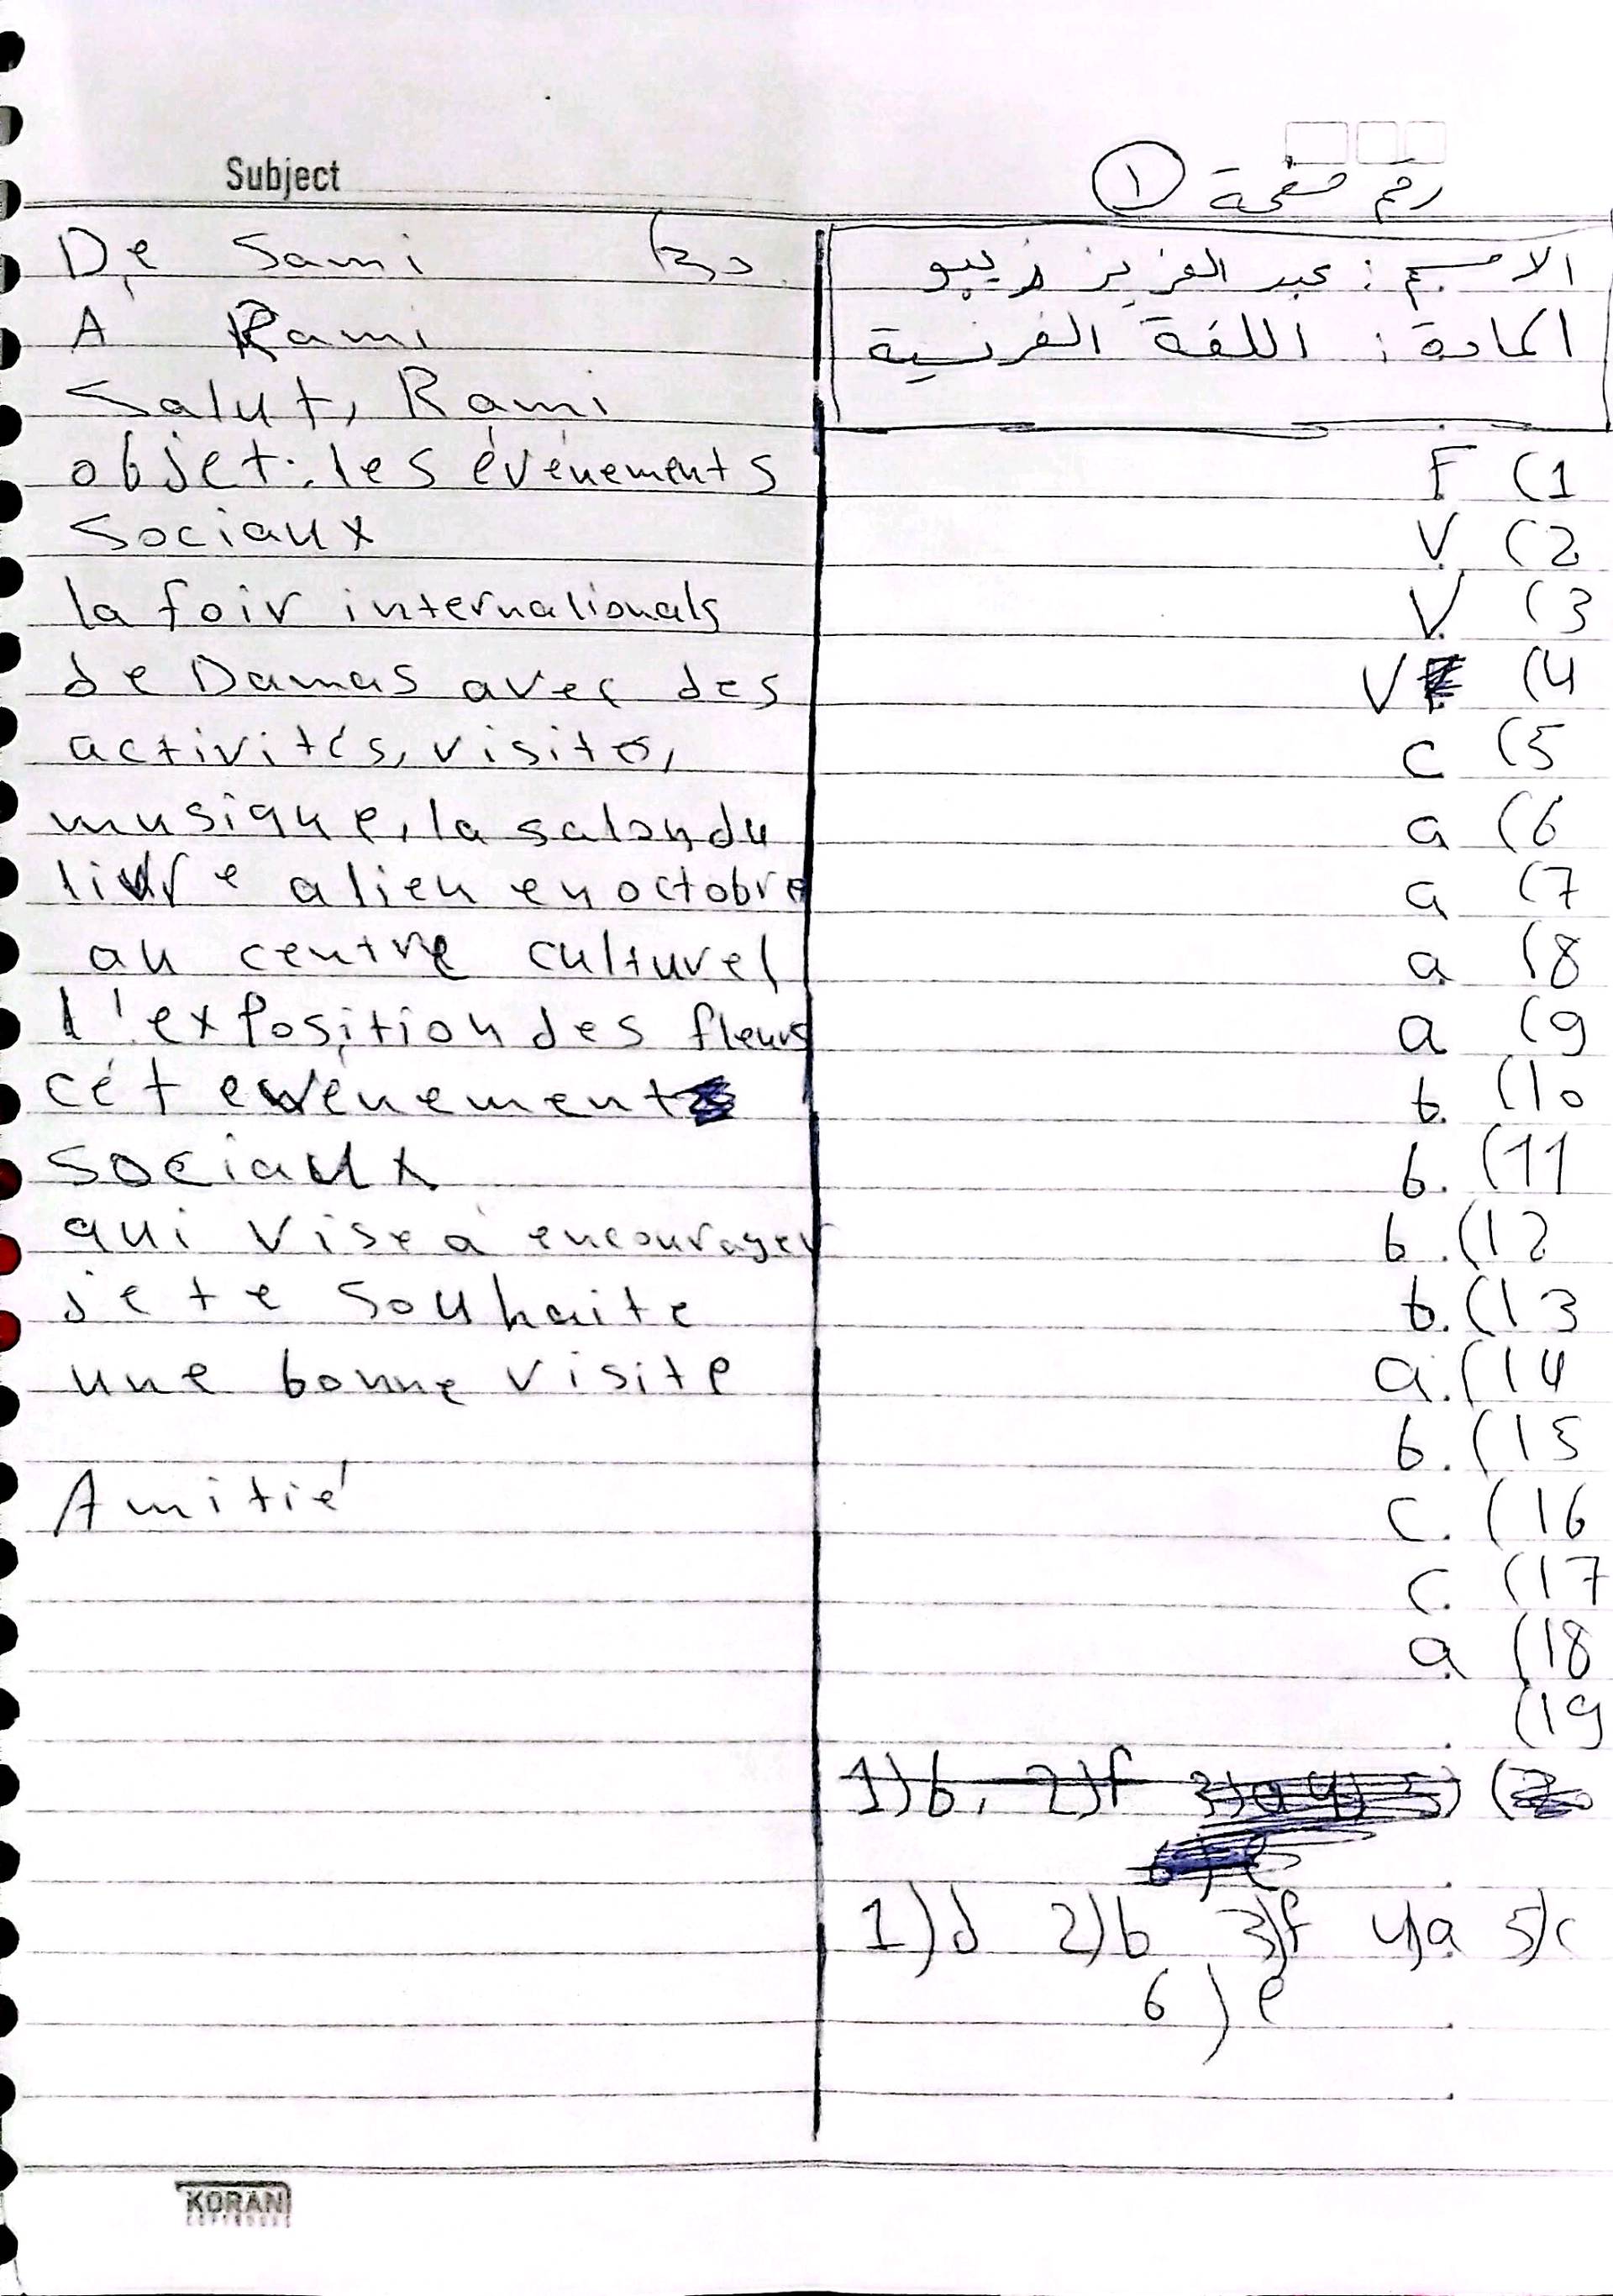 Subject
رقم صفحة ①
الاسم: عبد العزيز زيبو
المادة: اللغة الفرنسية
F (1
V (2
V (3
V (4
c (5
a (6
a (7
a (8
a (9
b. (10
b. (11
b. (12
b. (13
a. (14
b. (15
c. (16
c. (17
a (18
(19
1) b, 2) f
1) d 2) b 3) f 4) a 5) c
6) e
De Sami
A Rami
Salut, Rami
objet: les événements
sociaux
la foir internationals
de Damas avec des
activités, visite,
musique, la salon du
livre a lieu en octobre
au centre culturel
l'exposition des fleurs
cét evénement
sociaux
qui vise à encourager
je te souhaite
une bonne visite
Amitié
KORAN